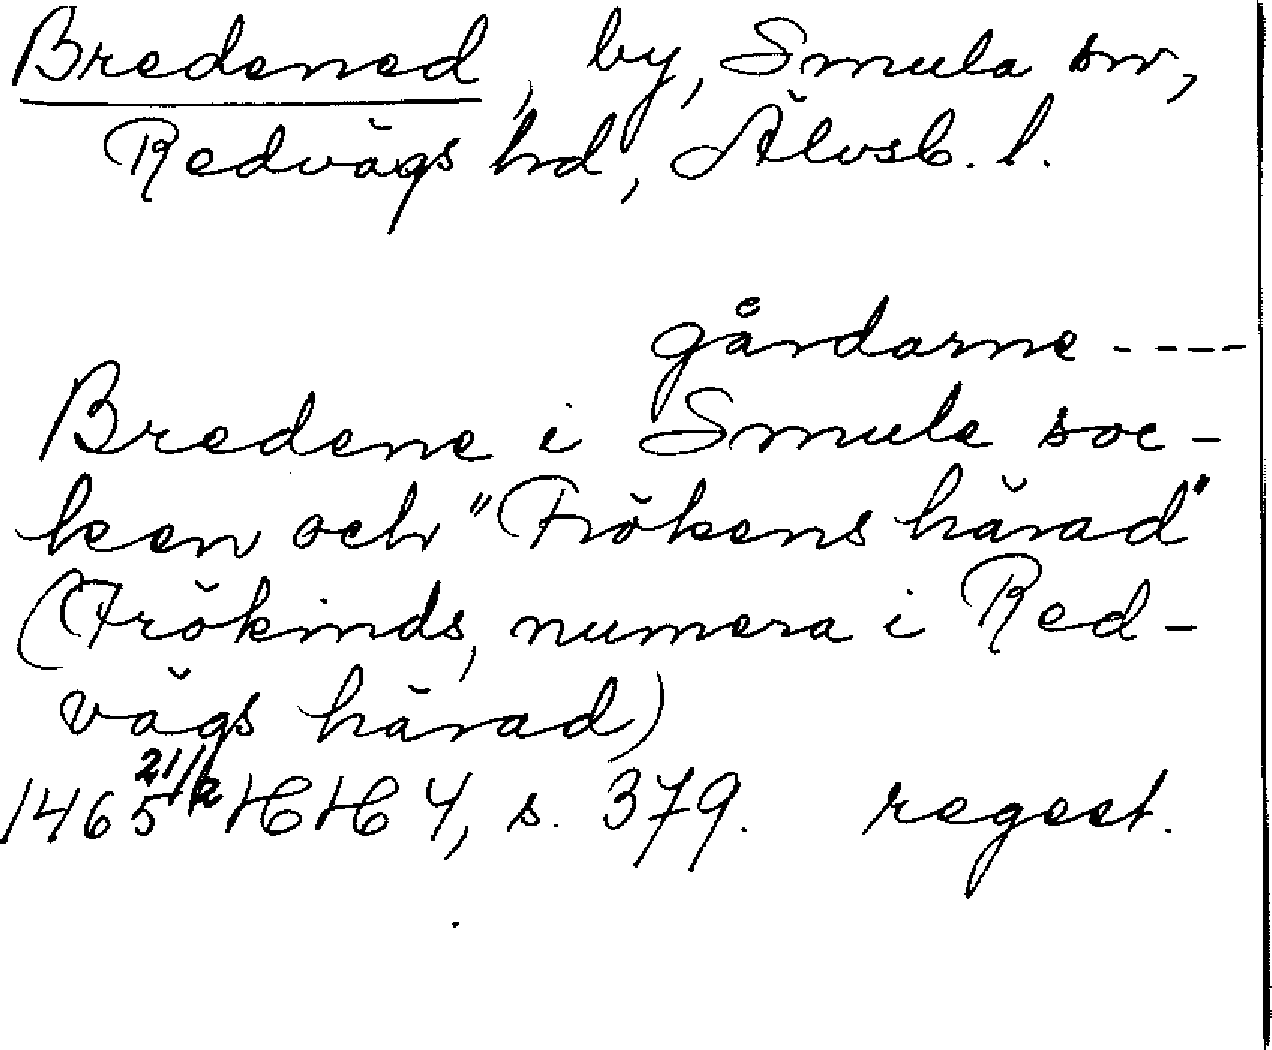 Bredened, by, Smula sn,
Redvägs hd, Älvsb. l.
gårdarne ----
Bredene i Smula soc-
ken och "Frökens härad"
(Frökinds, numera i Red-
vägs härad)
1465 21/2 HH 4, s. 379. regest.